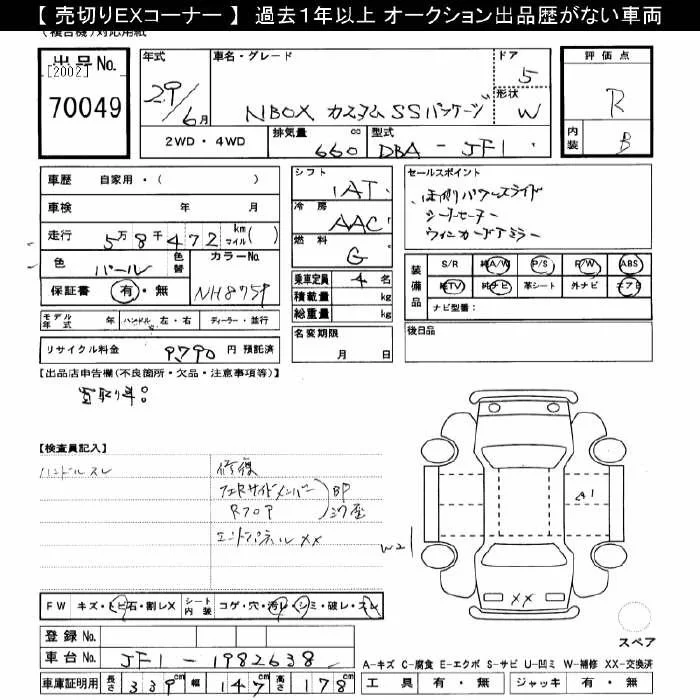 【 売切りEXコーナー 】 過去１年以上 オークション出品歴がない車両
(複合機)対応用紙
出品No.
[2002]
70049
年式
29/6月
車名・グレード
NBOX カスタム SSパッケージ
ドア
5
形状
W
2WD・4WD
排気量 cc
660
型式
DBA - JF1
評価点
R
内装
B
車歴 自家用・( )
車検 年 月
走行 5万8千472 km マイル( )
色 パール 色替
カラーNo.
NH875P
保証書 有・無
モデル年式 年 ハンドル 左・右 ディーラー・並行
リサイクル料金 9,790 円 預託済
シフト
IAT
冷房
AAC
燃料
G
乗車定員 4 名
積載量 kg
総重量 kg
名変期限
月 日
セールスポイント
・左側パワースライド
・シートヒーター
・ウィンカードアミラー
装備品
S/R 純A/W P/S P/W ABS
純TV 純ナビ 革シート 外ナビ エアB
ナビ型番:
後日品
【出品店申告欄(不良箇所・欠品・注意事項等)】
買取り車。
【検査員記入】
ハンドルスレ
修復
フロアサイドメンバー
Rフロア
BP
エンドパネルXX
A1
W2
XX
FW キズ・トビ石・割レX シート内装 コゲ・穴・汚レ・シミ・破レ・スレ
登録No.
車台No. JF1 - 1982638
車庫証明用 長さ 339cm 幅 147cm 高さ 178cm
スペア
A-キズ C-腐食 E-エクボ S-サビ U-凹ミ W-補修 XX-交換済
工具 有・無 ジャッキ 有・無